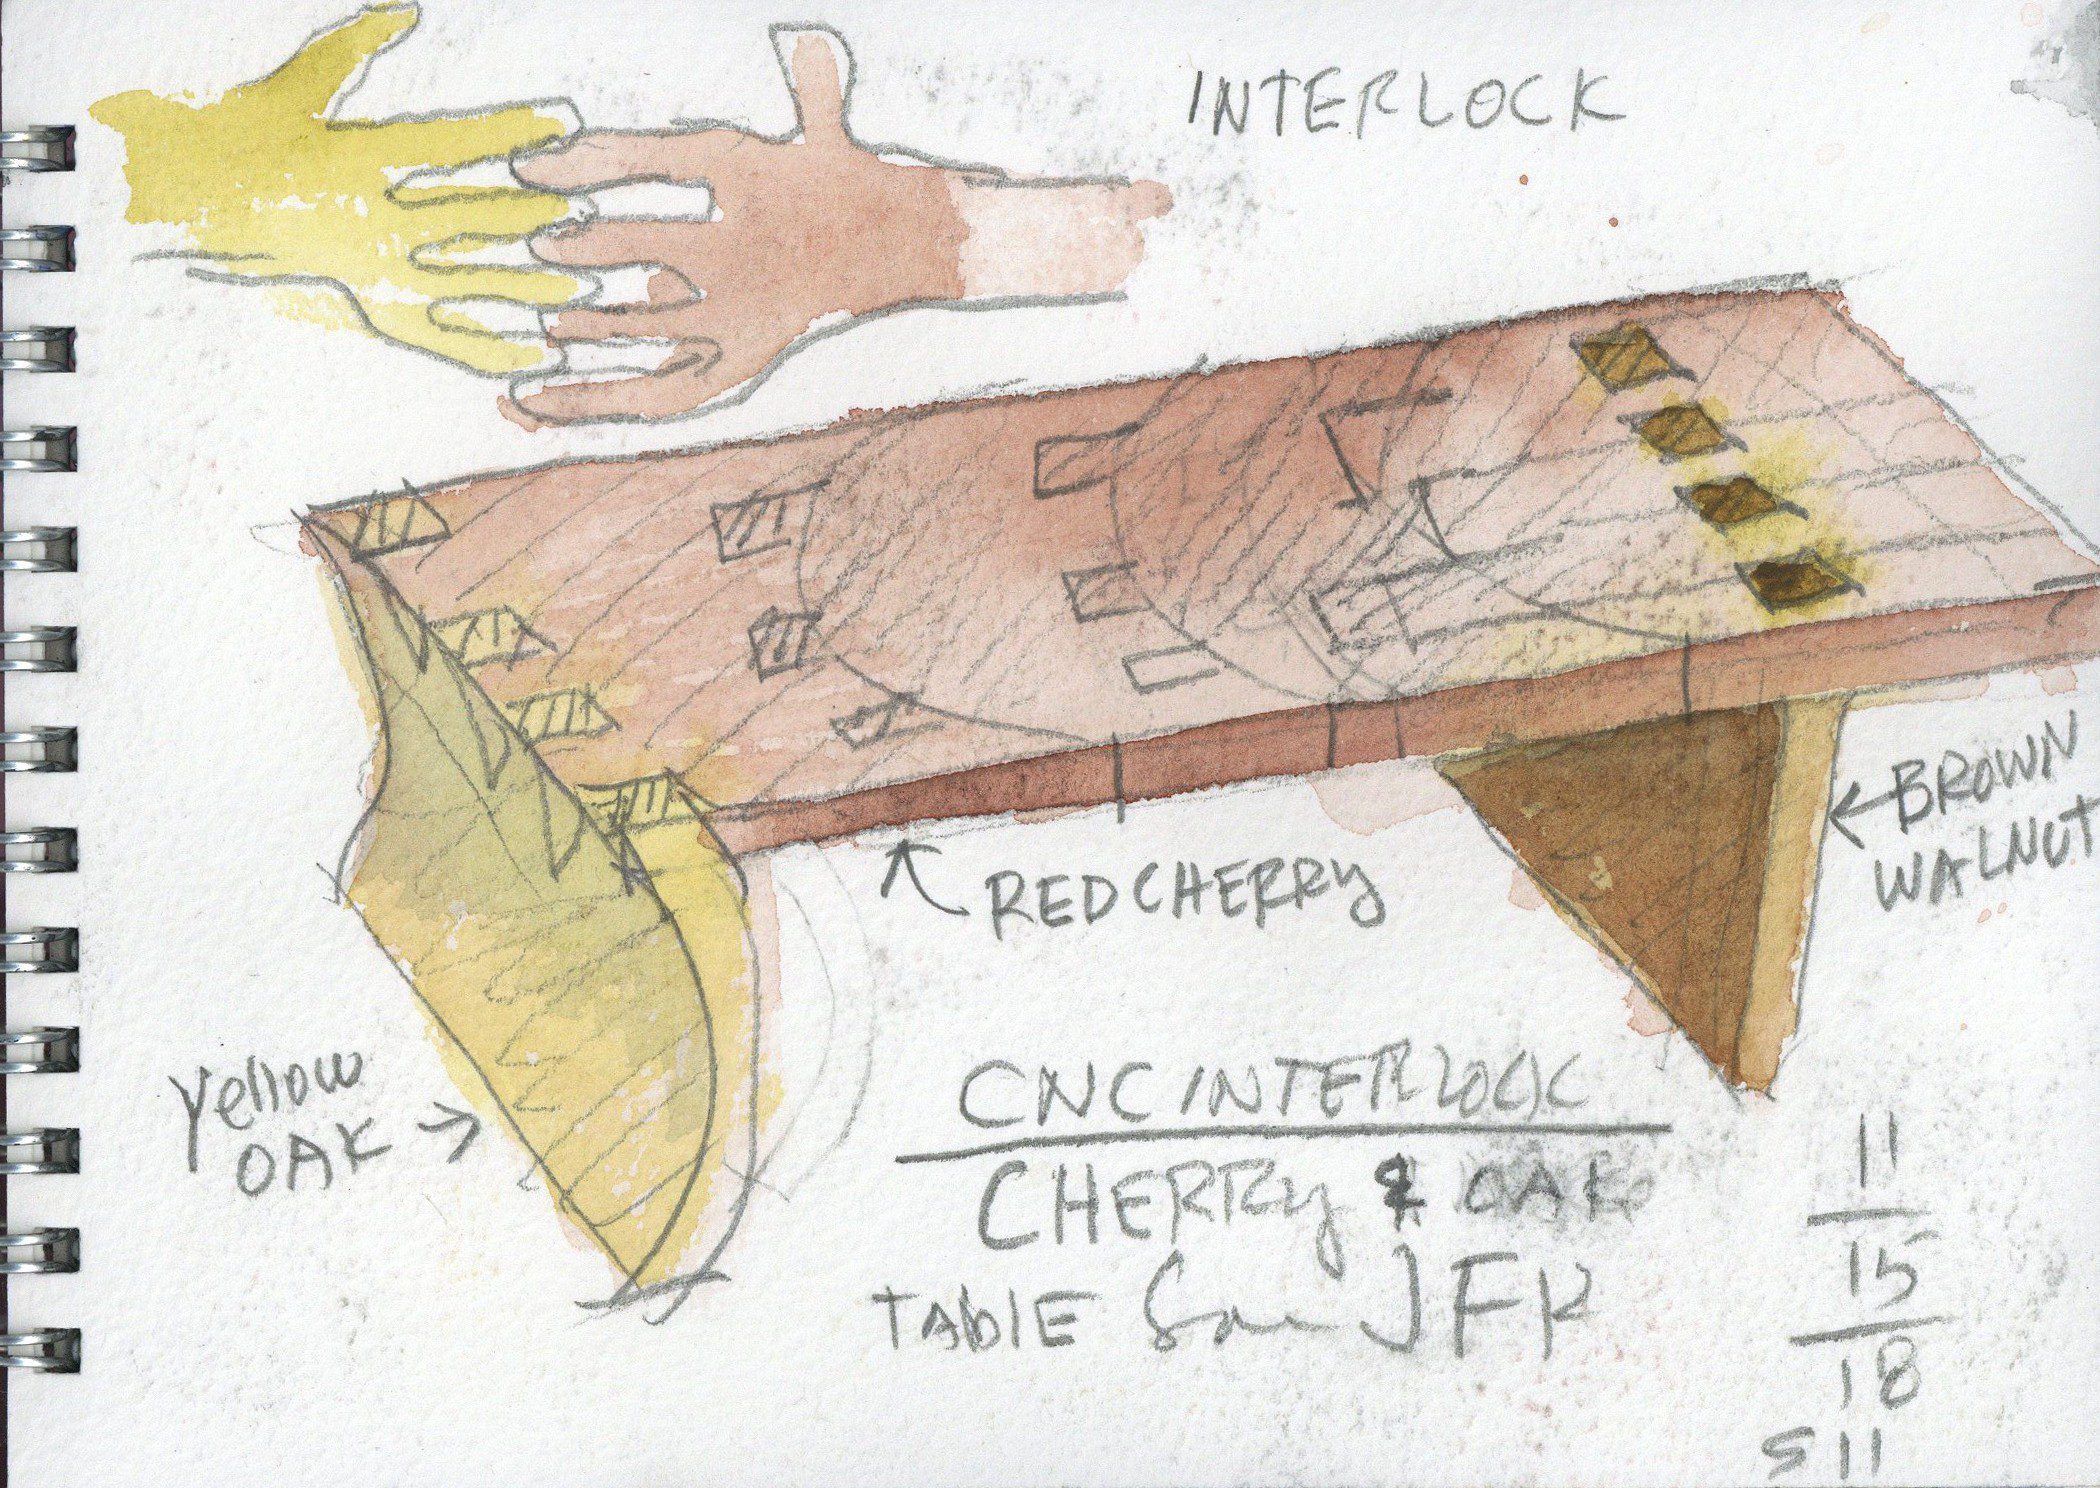 INTERLOCK
BROWN
WALNUT
REDCHERRY
yellow
OAK
CNC INTERLOCK
CHERRY & OAK
TABLE JFK
11
15
18
S 11